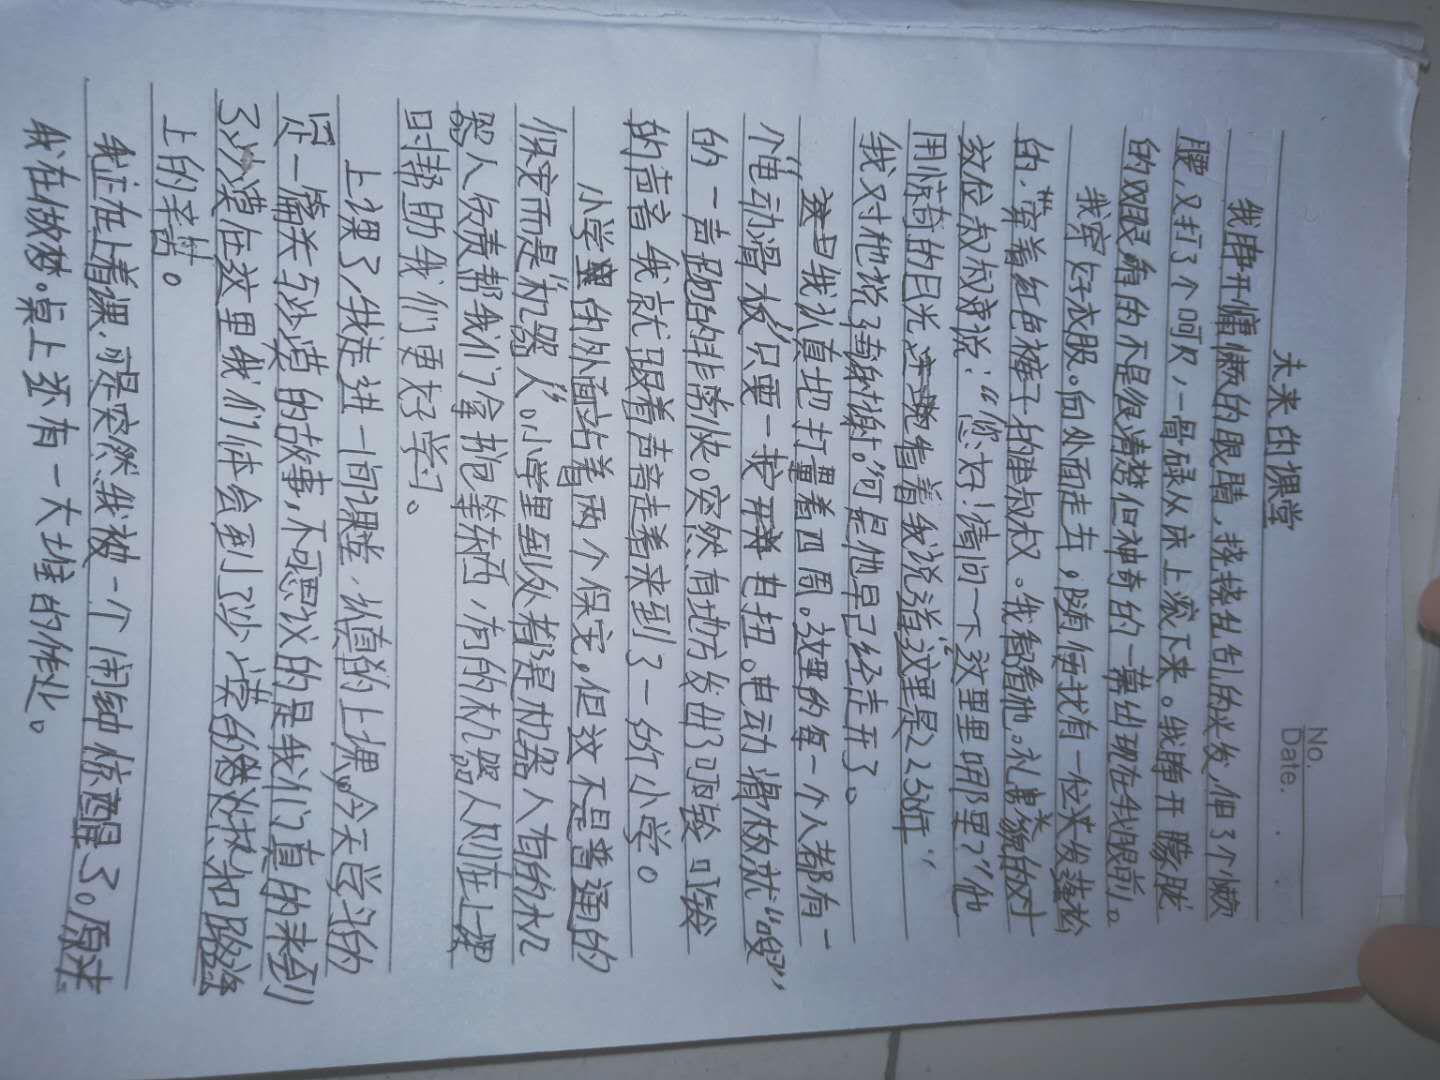 No.
Date.
未来的课堂
我睁开慵懒的眼睛，挠挠乱乱的头发，伸了个懒
腰，又打了个呵欠，一骨碌从床上滚下来。我睁开朦胧
的双眼看的不是很清楚但神奇的一幕出现在我眼前。
我穿好衣服。向外面走去，随便找有一位头发蓬松
的，穿着红色裤子的叔叔。我看看他。礼貌的对
这位叔叔说：“您好！请问一下这里是哪里？”他
用惊奇的目光看着我说道“这里是2236年”
我又对他说了声谢谢。可是他早已经走开了。
我认真地打量着四周。这里的每一个人都有一
个“电动滑板”只要一按开关电扭。电动滑板就“嗖”
的一声跑的非常快。突然有地方发出了叮铃叮铃
的声音我就跟着声音走着来到了一所小学。
小学的外面站着两个保安，但这不是普通的
保安而是“机器人”。小学里到处都是机器人有的机
器人负责帮我们拿书包等东西，有的机器人则在上课
时帮助我们更好学习。
上课了，我走进一间课堂，认真的上课。今天学习的
是一篇关与沙漠的故事，不可思议的是我们真的来到
了沙漠在这里我们体会到了沙漠的
上的辛苦。
我正在上着课，可是突然我被一个闹钟惊醒了。原来
我在做梦。桌上还有一大堆的作业。